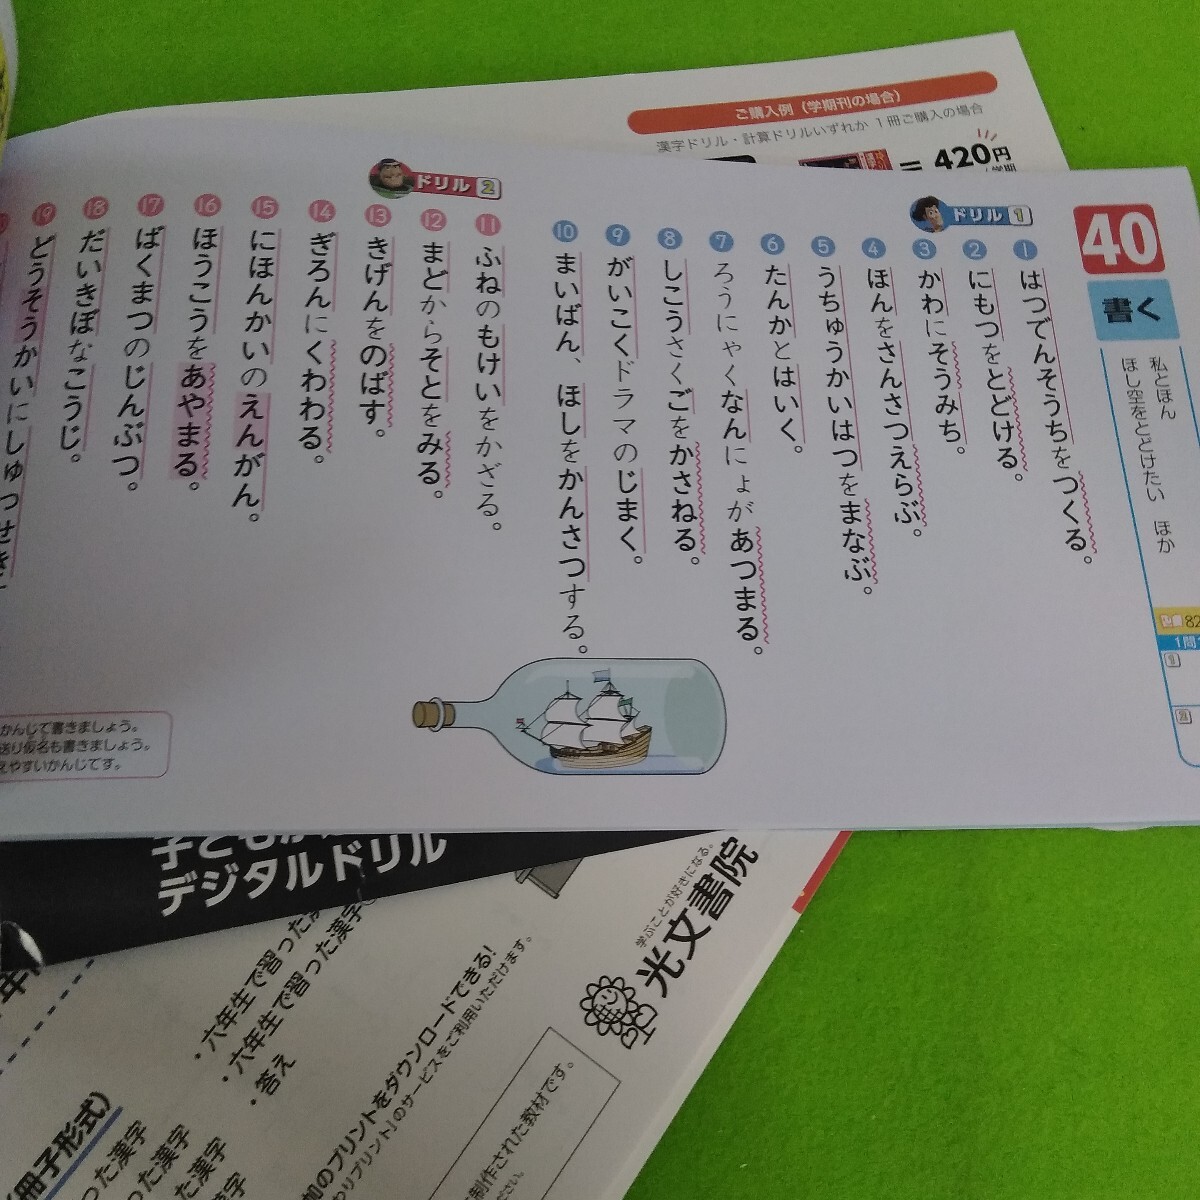 ご購入例（学期刊の場合）
漢字ドリル・計算ドリルいずれか 1冊ご購入の場合
= 420円
/学期
40
書く
私とほん
ほし空をとどけたい ほか
82
1問
1
2
ドリル 1
1 はつでんそうちをつくる。
2 にもつをとどける。
3 かわにそうみち。
4 ほんをさんさつえらぶ。
5 うちゅうかいはつをまなぶ。
6 たんかとはいく。
7 ろうにゃくなんにょがあつまる。
8 しこうさくごをかさねる。
9 がいこくドラマのじまく。
10 まいばん、ほしをかんさつする。
ドリル 2
11 ふねのもけいをかざる。
12 まどからそとをみる。
13 きげんをのばす。
14 ぎろんにくわわる。
15 にほんかいのえんがん。
16 ほうこうをあやまる。
17 ばくまつのじんぶつ。
18 だいきぼなこうじ。
19 どうそうかいにしゅっせき
かんじで書きましょう。
送り仮名も書きましょう。
えやすいかんじです。
子ども
デジタルドリル
・六年生で習った漢
・六年生で習った漢字
・答え
冊子形式）
った漢字
った漢字
た漢字
漢字
加のプリントをダウンロードできる!
わりプリント」のサービスをご利用いただけます。
制作された教材です。
ださい。
学ぶことが好きになる。
光文書院